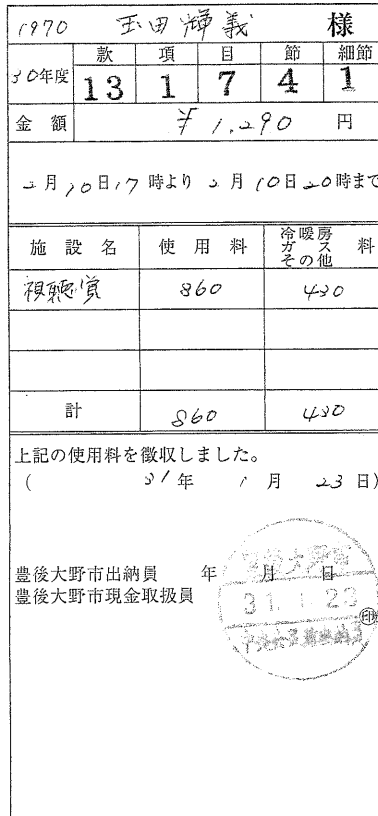 1970 玉田輝義 様
30年度 款 項 目 節 細節
13 1 7 4 1
金額 ¥1,290 円
2月10日17時より 2月10日20時まで
施設名 使用料 冷暖房ガスその他料
視聴覚 860 430
計 860 430
上記の使用料を徴収しました。
( 31年 1月 23日)
豊後大野市出納員 年 月 日
豊後大野市現金取扱員 ㊞
豊後大野市
31.1.23